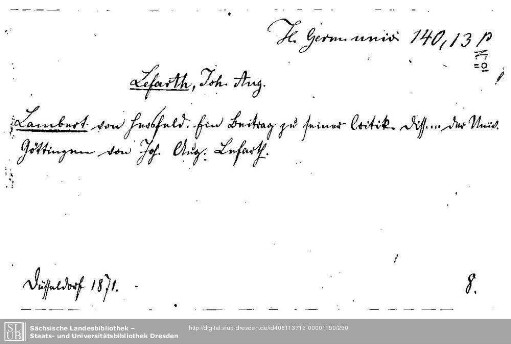 H. Germ. univ. 140, 13 p
Lefarth, Joh. Aug.
Lambert von Hersfeld. Ein Beitrag zu seiner Critik. Diss. der Univ.
Göttingen von Joh. Aug. Lefarth.
Düsseldorf 1871.
8.
Sächsische Landesbibliothek –
Staats- und Universitätsbibliothek Dresden